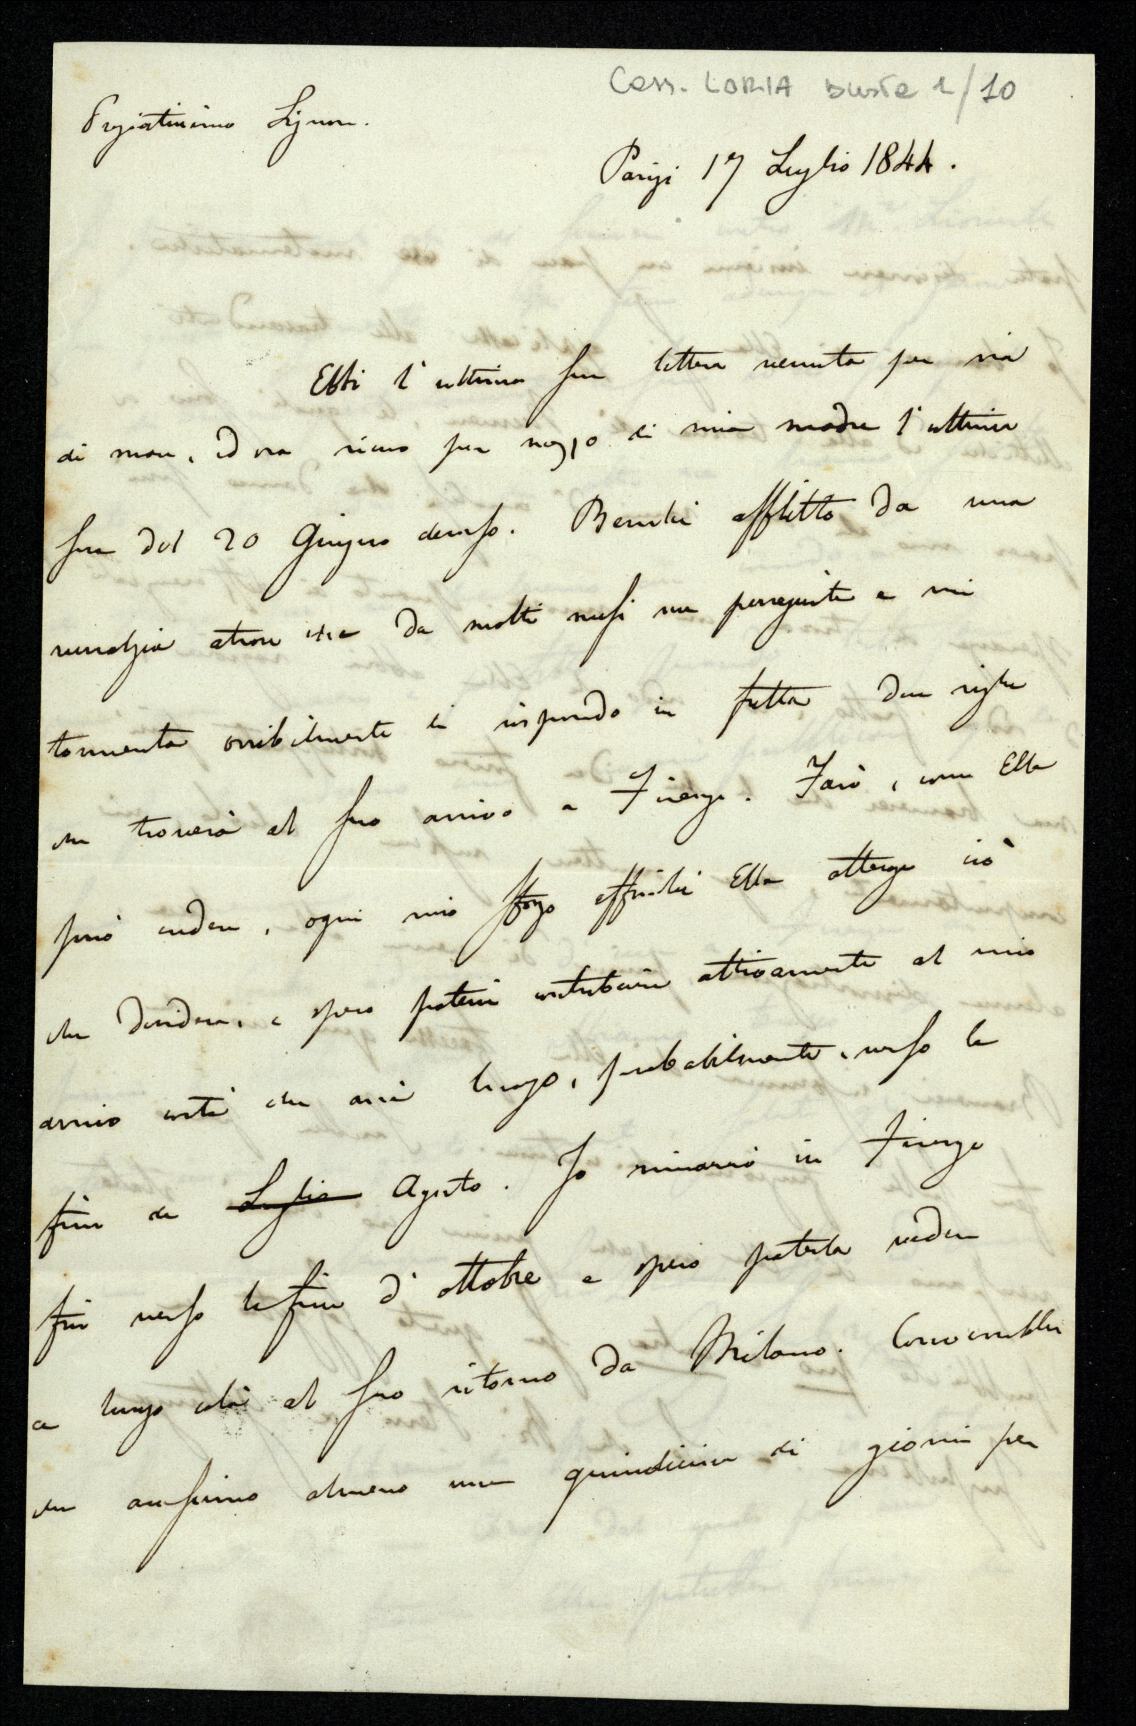 Cass. LORIA busta 1/10
Pregiatissimo Signore.
Parigi 17 Luglio 1844.
Ebbi l'ultima sua lettera venuta per via
di mare, ed ora ricevo per mezzo di mia madre l'ultima
sua del 20 Giugno decorso. Benché afflitto da una
nevralgia atroce che da molti mesi me perseguita e mi
tormenta orribilmente le rispondo in fretta due righe
che troverà al suo arrivo a Firenze. Farò, come Ella
può credere, ogni mio sforzo affinché Ella ottenga ciò
che desidera, e spero poterci contribuire attivamente al mio
arrivo costà che avrà luogo, probabilmente, verso la
fine di Luglio Agosto. Io rimarrò in Firenze
fin verso la fine d'ottobre e spero poterla vedere
a lungo colà al suo ritorno da Milano. Converrebbe
che avessimo almeno una quindicina di giorni per